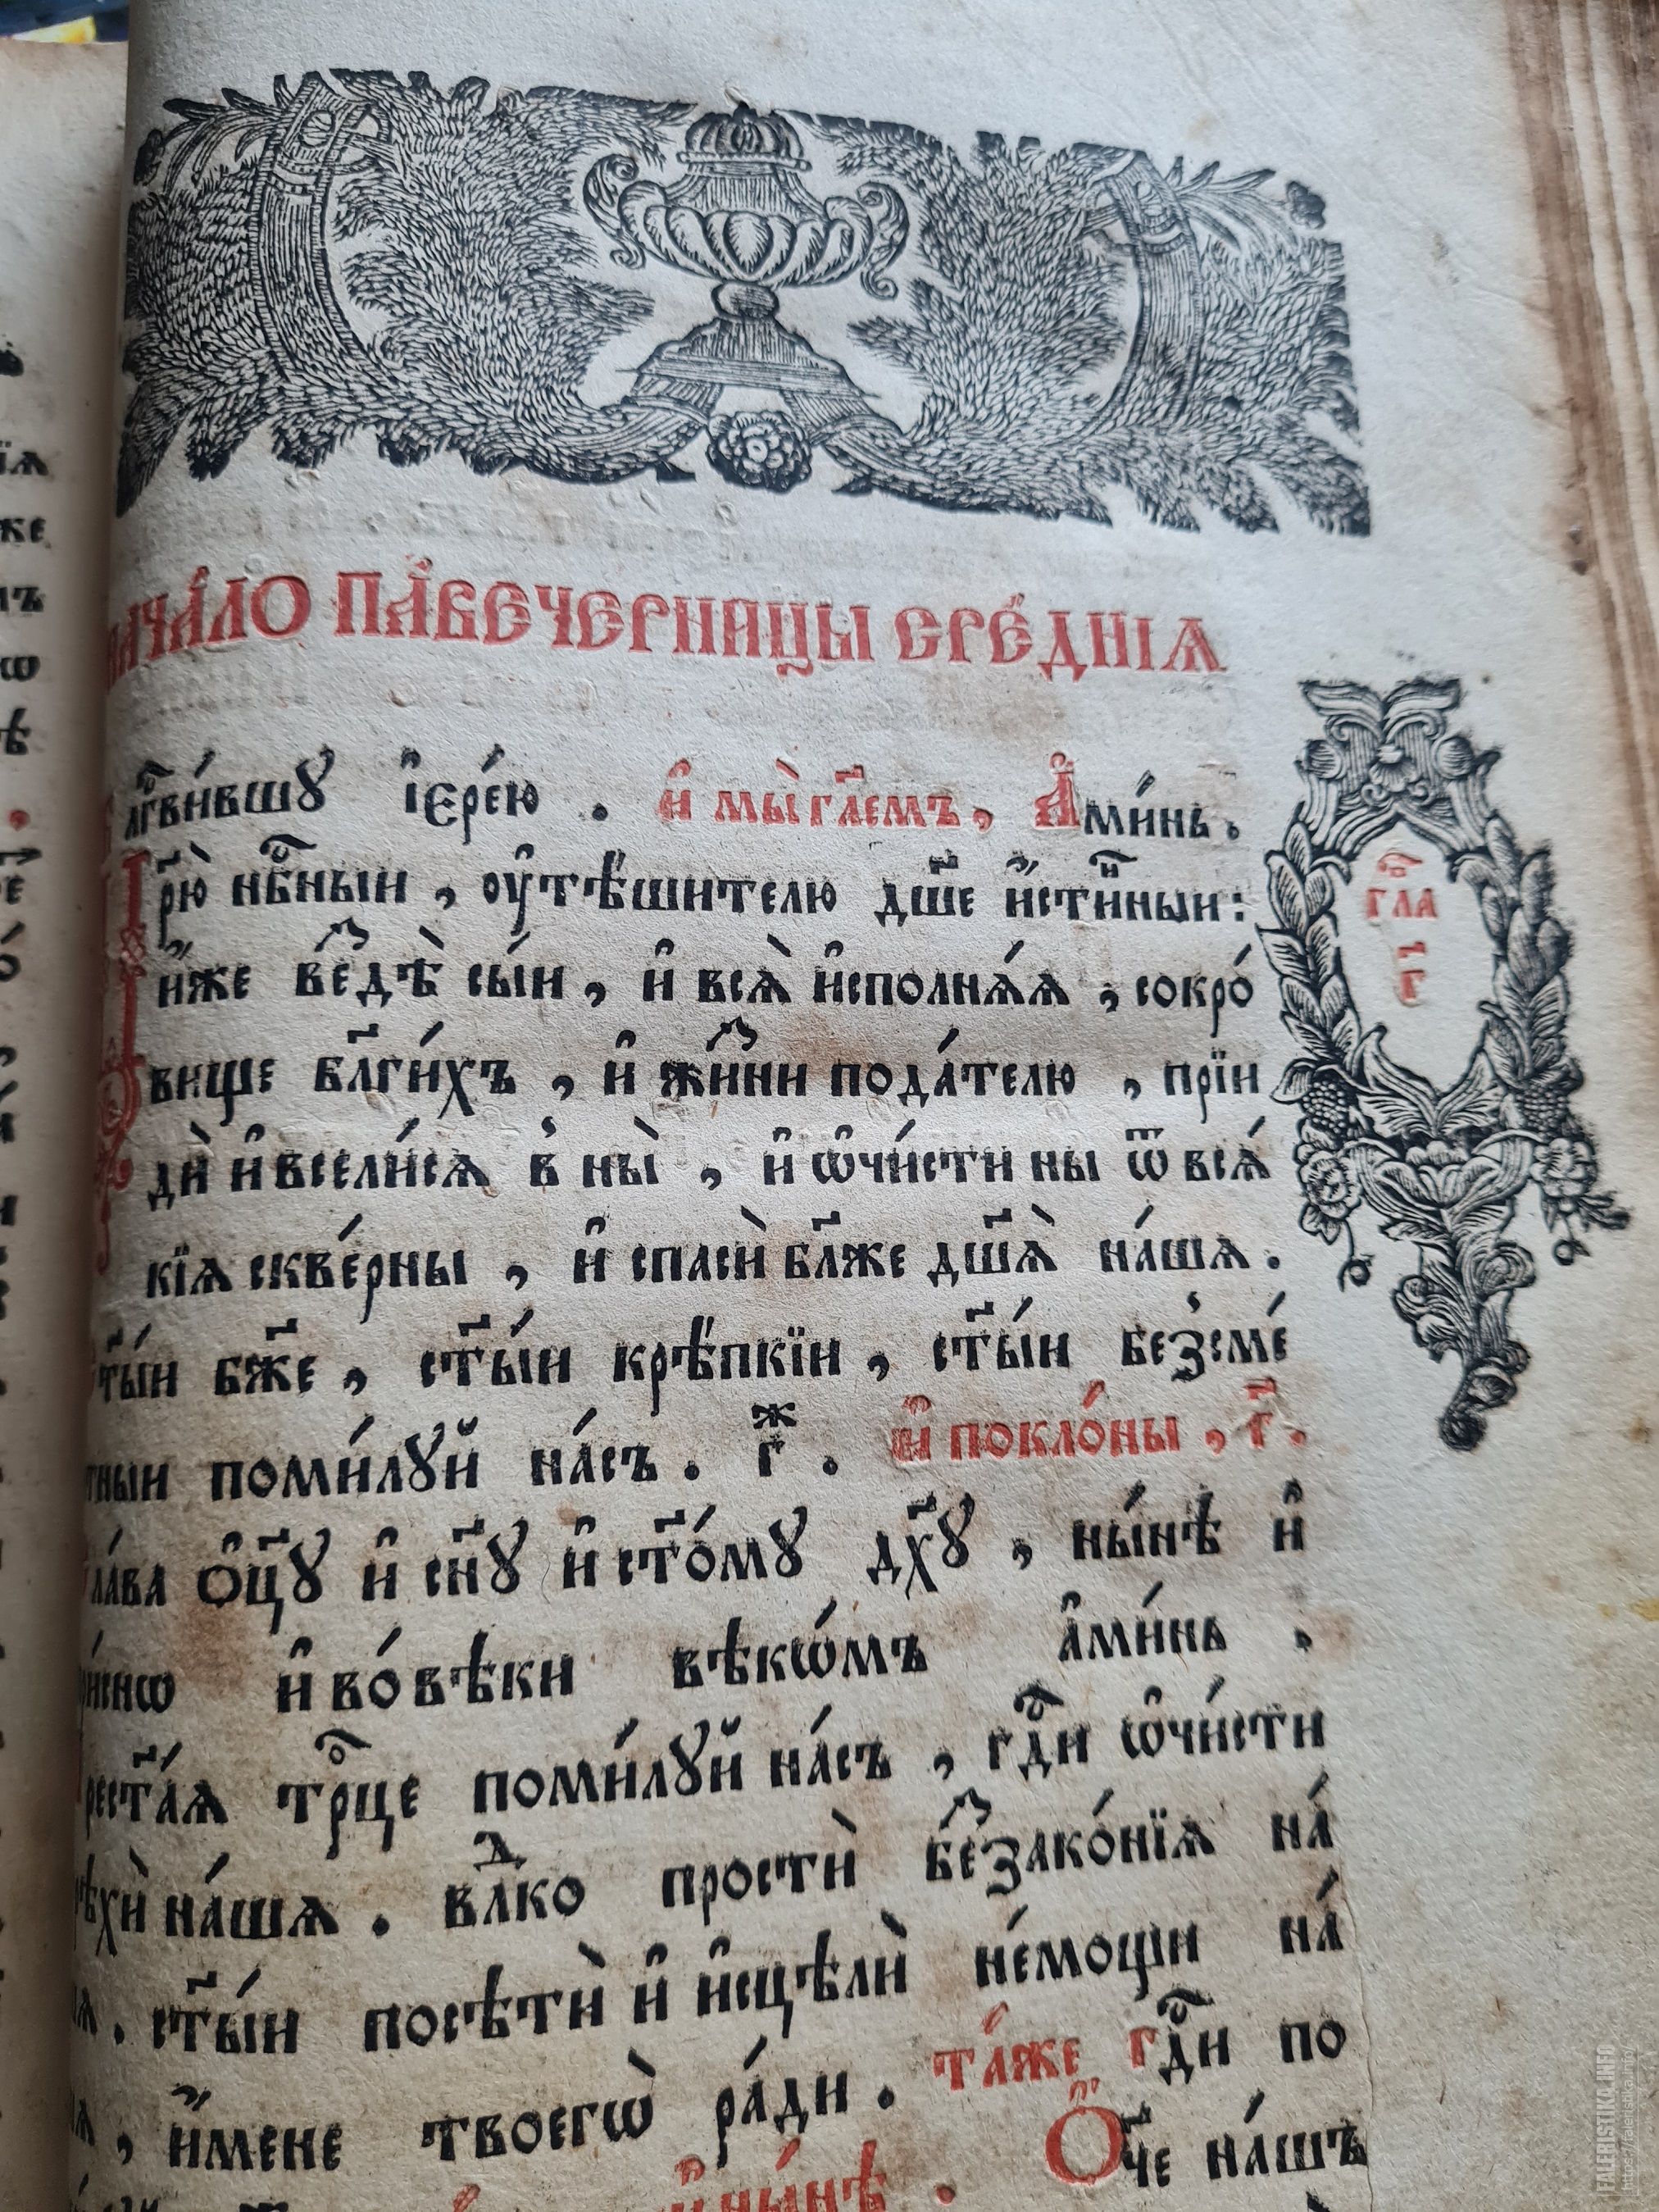 нача́ло па́вечерницы сре́дніѧ
блгⷭ҇ви́вшꙋ і҆ере́ю . и҆ мы̀ гл҃емъ , А҆ми́нь .
Цр҃ю̀ нбⷭ҇ныи , оу҆тѣ́шителю дш҃е и҆́стинныи :
и҆́же вездѣ̀ сы́и , и҆ всѧ̀ и҆сполнѧ́ѧ , сокро́
вище бл҃ги́хъ , и҆ жи́зни пода́телю , прїи
дѝ и҆ всели́сѧ в̾ ны̀ , и҆ ѡ҆чи́сти ны ѿ всѧ́
кїѧ скве́рны , и҆ спасѝ бл҃же дш҃ѧ̀ на́шѧ .
ст҃ы́и бж҃е , ст҃ы́и крѣ́пкїи , ст҃ы́и без̾сме́
ртныи поми́лꙋй на́съ . гⷤ . и҆ покло́ны , г҃ .
Сла́ва ѻ҆ц҃ꙋ̀ и҆ сн҃ꙋ и҆ ст҃о́мꙋ дх҃ꙋ , ны́нѣ и҆
при́снѡ и҆ во́ вѣки вѣкѡ́мъ а҆ми́нь .
Прест҃а́ѧ трⷪ҇це поми́лꙋй на́съ , гдⷭ҇и ѡ҆чи́сти
грѣхѝ на́шѧ . влⷣко простѝ беззако́нїѧ на́
шѧ . ст҃ы́и посѣтѝ и҆ и҆сцѣлѝ не́мощи на́
шѧ , и҆́мене твоегѡ̀ ра́ди . та́же гдⷭ҇и по
Ѻ҆́ч҃е на́шъ
и҆ ны́нѣ .
глⷭ҇а
г҃
FALERISTIKA.INFO
https://faleristika.info